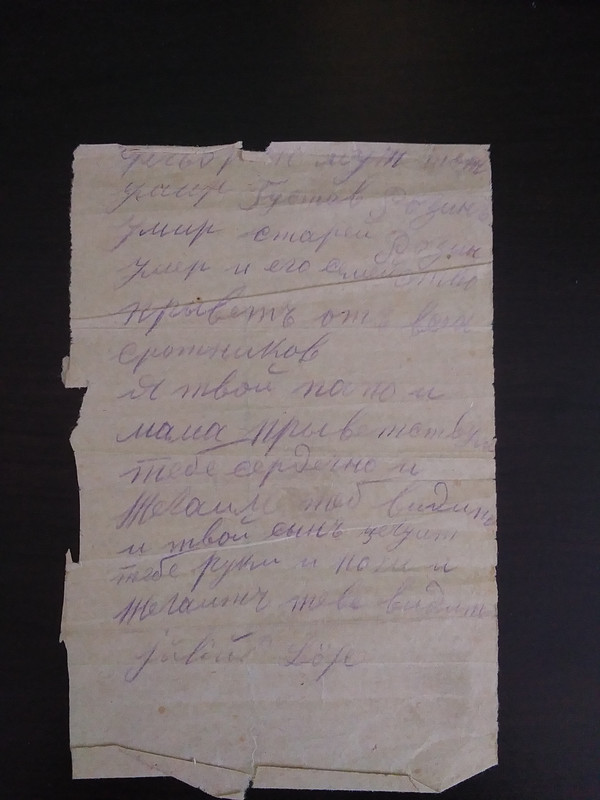 муж
умир Густав Розин
умир старей Розин
умер и его семейство
прыветъ от всех
сротников
Я твой папо и
мама прыветству
тебе сердечно и
жегаим теб видить
и твой сынъ целуит
тебе руки и ноги и
жегаитъ тебе видит